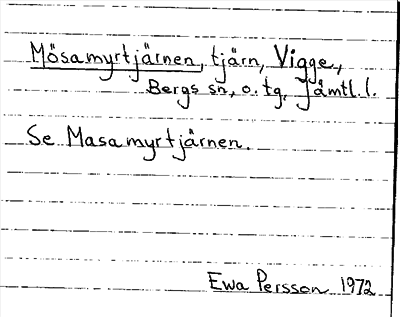 Mösamyrtjärnen, tjärn, Vigge,
Bergs sn, o. tg, Jämtl. l.
Se Masamyrtjärnen.
Ewa Persson 1972